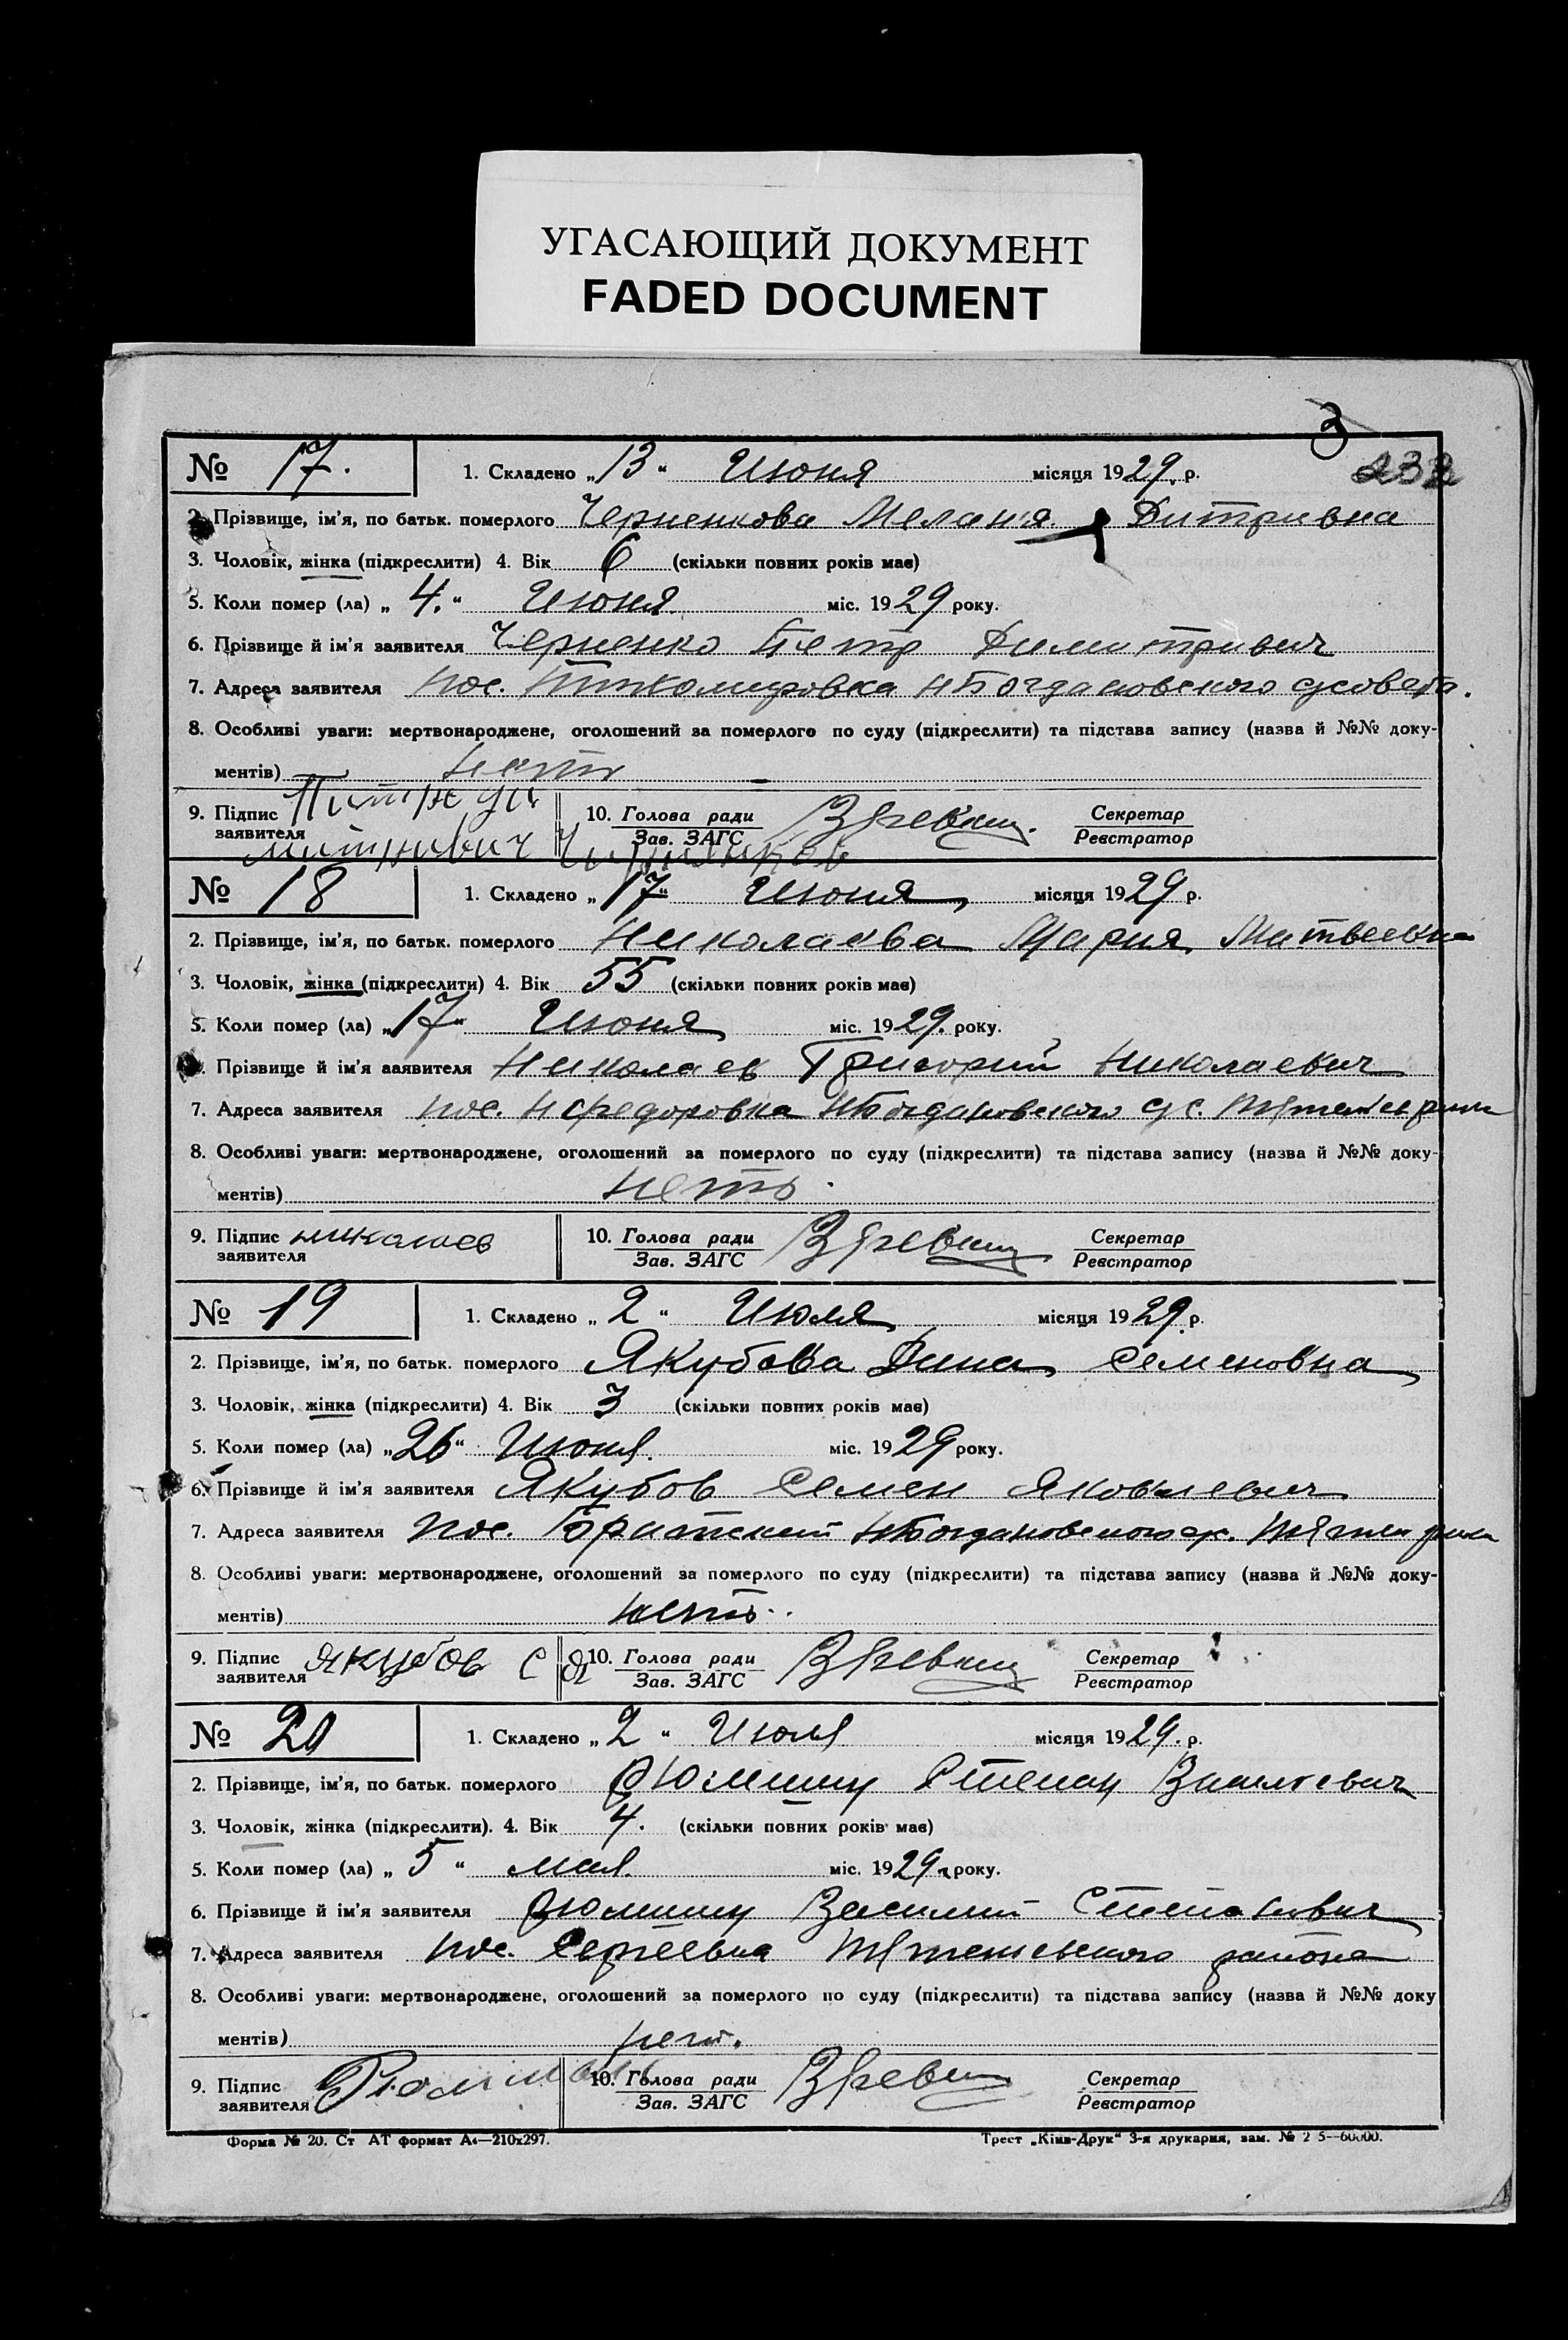 УГАСАЮЩИЙ ДОКУМЕНТ
FADED DOCUMENT
3
232
№ 17. 1. Складено „13“ Июня місяця 1929 р.
2. Прізвище, ім'я, по батьк. померлого Черненкова Мелан'я Дитривна
3. Чоловік, жінка (підкреслити) 4. Вік 6 (скільки повних років має)
5. Коли помер (ла) „4.“ Июня міс. 1929 року.
6. Прізвище й ім'я заявителя Черненко Петр Димитривич
7. Адреса заявителя пос. Тихомировка НБогдановского с/совета.
8. Особливі уваги: мертвонароджене, оголошений за померлого по суду (підкреслити) та підстава запису (назва й №№ доку-
ментів) нетъ
9. Підпис заявителя 10. Голова ради Секретар
Зав. ЗАГС Реєстратор
№ 18 1. Складено „17“ Июня місяця 1929 р.
2. Прізвище, ім'я, по батьк. померлого Николаева Мария Матвеевна
3. Чоловік, жінка (підкреслити) 4. Вік 55 (скільки повних років має)
5. Коли помер (ла) „17“ Июня міс. 1929. року.
Прізвище й ім'я заявителя Николаев Григорий Николаевич
7. Адреса заявителя пос. Нфедоровка НБогдановского с/с.
8. Особливі уваги: мертвонароджене, оголошений за померлого по суду (підкреслити) та підстава запису (назва й №№ доку-
ментів) нетъ.
9. Підпис заявителя николаев 10. Голова ради Секретар
Зав. ЗАГС Реєстратор
№ 19 1. Складено „2“ Июля місяця 1929 р.
2. Прізвище, ім'я, по батьк. померлого Якубова Дина Семеновна
3. Чоловік, жінка (підкреслити) 4. Вік 3 (скільки повних років має)
5. Коли помер (ла) „26“ Июня. міс. 1929 року.
6. Прізвище й ім'я заявителя Якубов Семен Яковлевич
7. Адреса заявителя пос. Братский НБогдановского с/с.
8. Особливі уваги: мертвонароджене, оголошений за померлого по суду (підкреслити) та підстава запису (назва й №№ доку-
ментів) нетъ.
9. Підпис заявителя Якубов С Я 10. Голова ради Секретар
Зав. ЗАГС Реєстратор
№ 20 1. Складено „2“ Июля місяця 1929. р.
2. Прізвище, ім'я, по батьк. померлого Степан Васильевич
3. Чоловік, жінка (підкреслити). 4. Вік 4. (скільки повних років має)
5. Коли помер (ла) „5“ мая. міс. 1929 року.
6. Прізвище й ім'я заявителя Василий Степанович
7. Адреса заявителя пос. Сергеевка района
8. Особливі уваги: мертвонароджене, оголошений за померлого по суду (підкреслити) та підстава запису (назва й №№ доку
ментів) нет.
9. Підпис заявителя 10. Голова ради Секретар
Зав. ЗАГС Реєстратор
Форма № 20. Ст АТ формат А4—210х297. Трест „Київ-Друк“ 3-я друкарня, зам. №